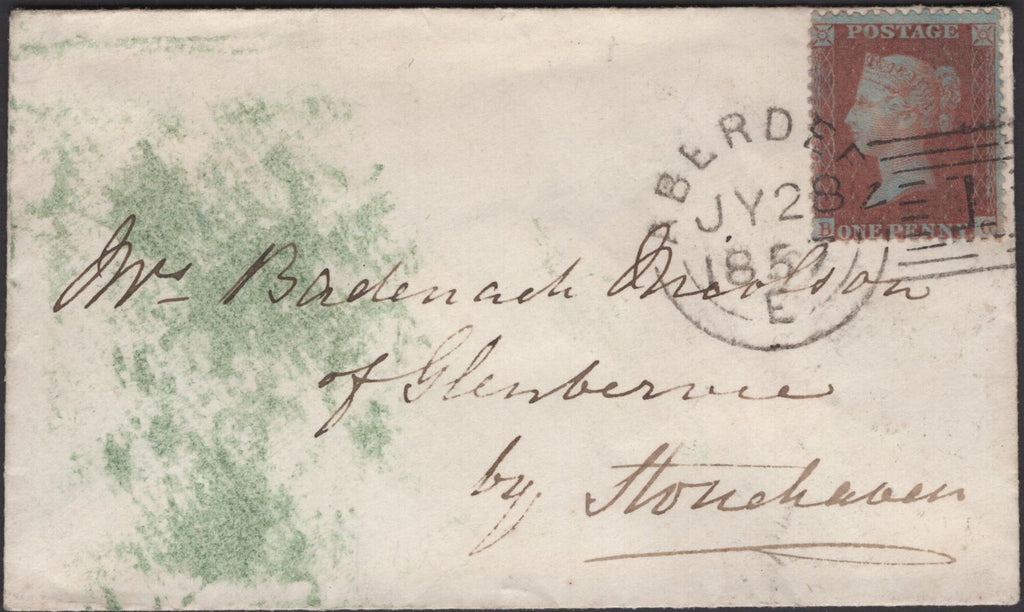 POSTAGE
ABERDEE
JY 28
185
E
1
B ONE PENNY
Mrs Badenach Nicolson
of Glenbervie
by Stonehaven